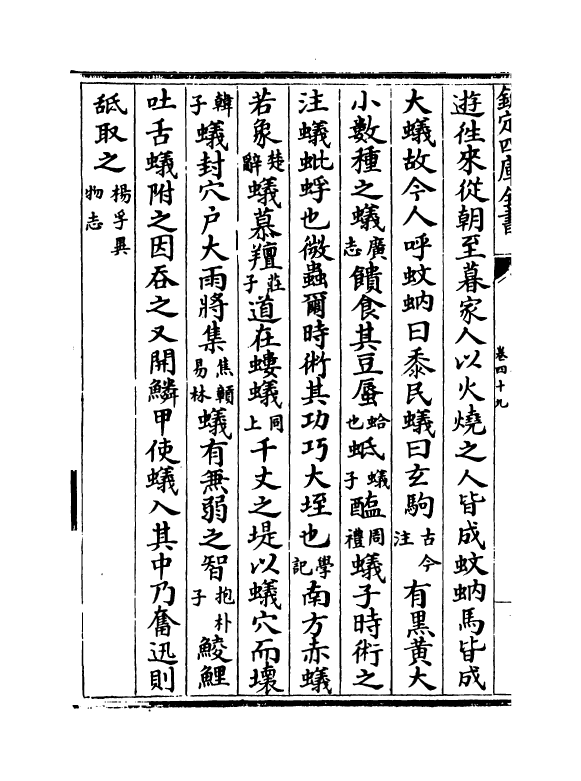 欽定四庫全書
卷四十九
遊徃來從朝至暮家人以火燒之人皆成蚊蚋馬皆成
大蟻故今人呼蚊蚋曰黍民蟻曰玄駒古今注有黑黄大
小數種之蟻廣志饋食其豆蜃蛤也蚳蟻子醢周禮蟻子時術之
注蟻蚍蜉也微蟲爾時術其功巧大垤也學記南方赤蟻
若象楚辭蟻慕羶莊子道在螻蟻同上千丈之堤以蟻穴而壞
韓子蟻封穴戶大雨將集焦贑易林蟻有兼弱之智抱朴子鯪鯉
吐舌蟻附之因吞之又開鱗甲使蟻入其中乃奮迅則
舐取之楊孚異物志